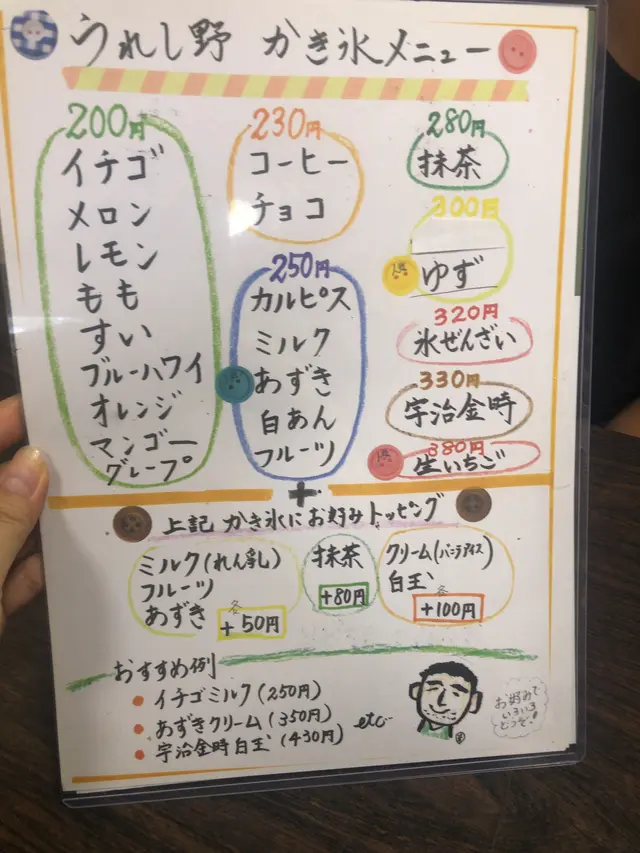 うれし野 かき氷メニュー
200円
イチゴ
メロン
レモン
もも
すい
ブルーハワイ
オレンジ
マンゴー
グレープ
230円
コーヒー
チョコ
250円
カルピス
ミルク
あずき
白あん
フルーツ
280円
抹茶
300円
ゆず
320円
氷ぜんざい
330円
宇治金時
380円
生いちご
+
上記 かき氷にお好みトッピング
ミルク(れん乳)
フルーツ
あずき
各
+50円
抹茶
+80円
クリーム(バニラアイス)
白玉
各
+100円
おすすめ例
イチゴミルク(250円)
あずきクリーム(350円)
宇治金時白玉(430円)
etc
お好みで
いろいろ
どうぞ!